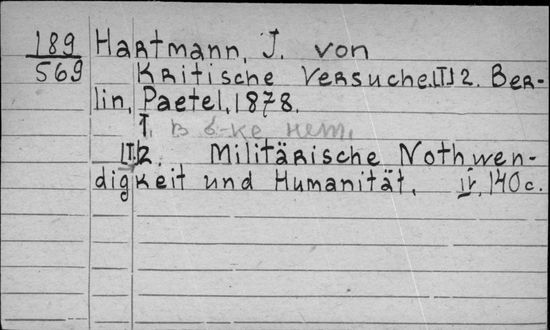 189 Hartmann, J. von
569 Kritische Versuche.[I] 2. Ber-
lin, Paetel, 1878.
I. в б-ке нем.
[I.] 2. Militärische Nothwen-
digkeit und Humanität. IV, 140 c.